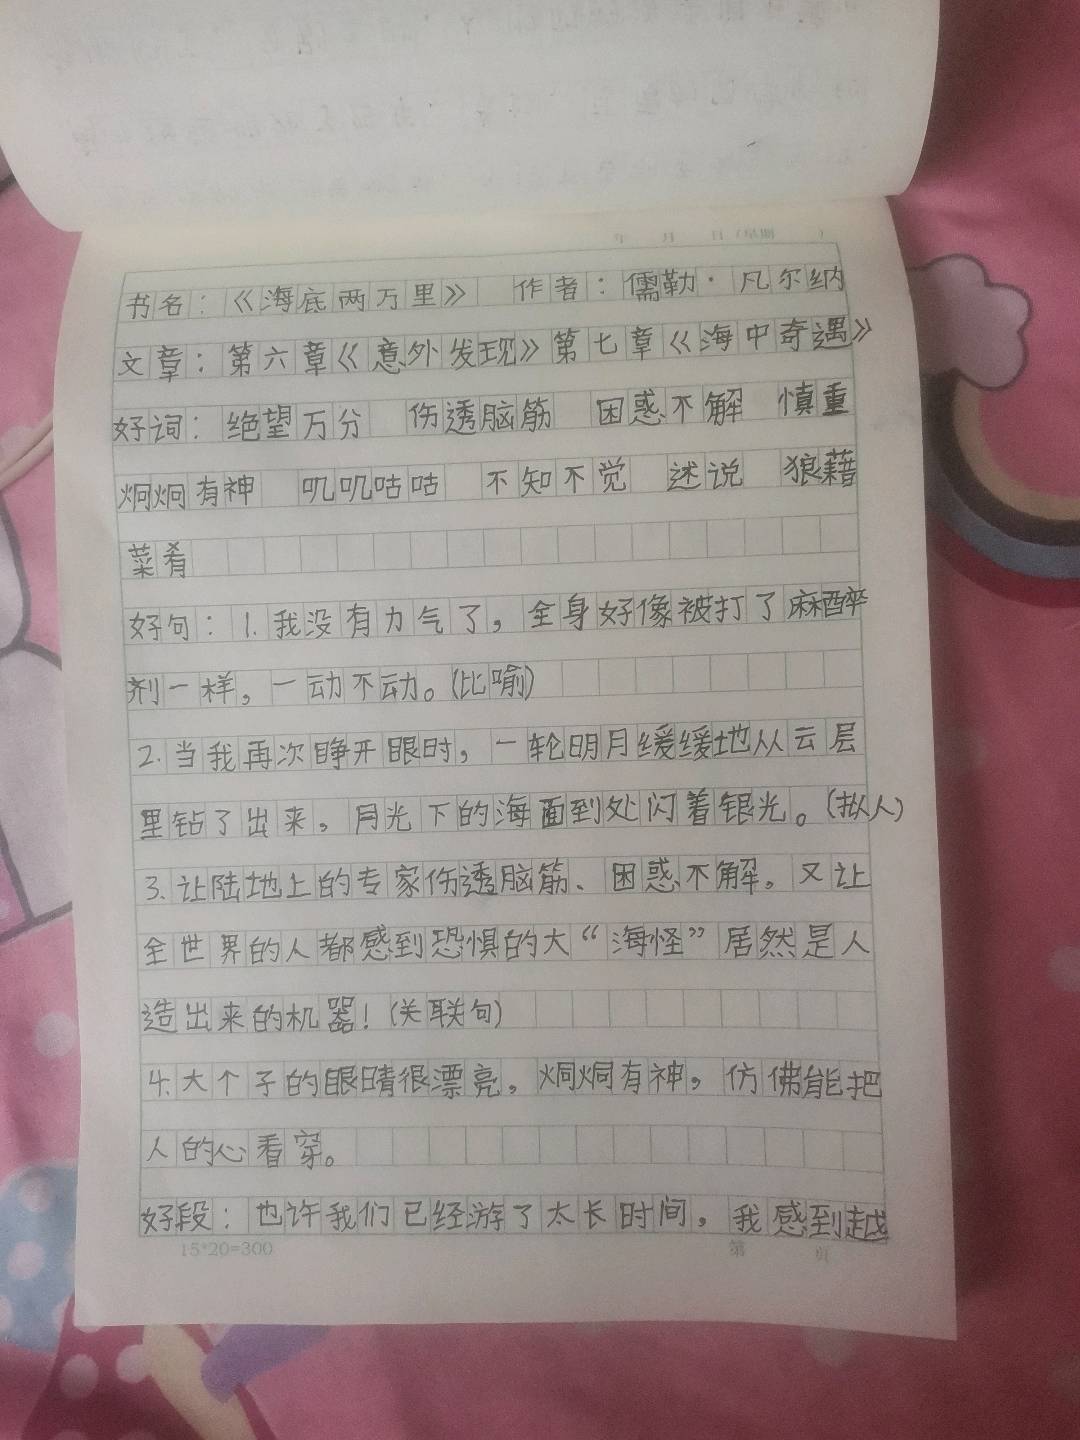 年 月 日(星期 )
书名:《海底两万里》 作者:儒勒·凡尔纳
文章:第六章《意外发现》第七章《海中奇遇》
好词:绝望万分 伤透脑筋 困惑不解 慎重
炯炯有神 叽叽咕咕 不知不觉 述说 狼藉
菜肴
好句:1.我没有力气了,全身好像被打了麻醉
剂一样,一动不动。(比喻)
2.当我再次睁开眼时,一轮明月缓缓地从云层
里钻了出来,月光下的海面到处闪着银光。(拟人)
3.让陆地上的专家伤透脑筋、困惑不解。又让
全世界的人都感到恐惧的大“海怪”居然是人
造出来的机器!(关联句)
4.大个子的眼睛很漂亮,炯炯有神,仿佛能把
人的心看穿。
好段:也许我们已经游了太长时间,我感到越
15*20=300 第 页